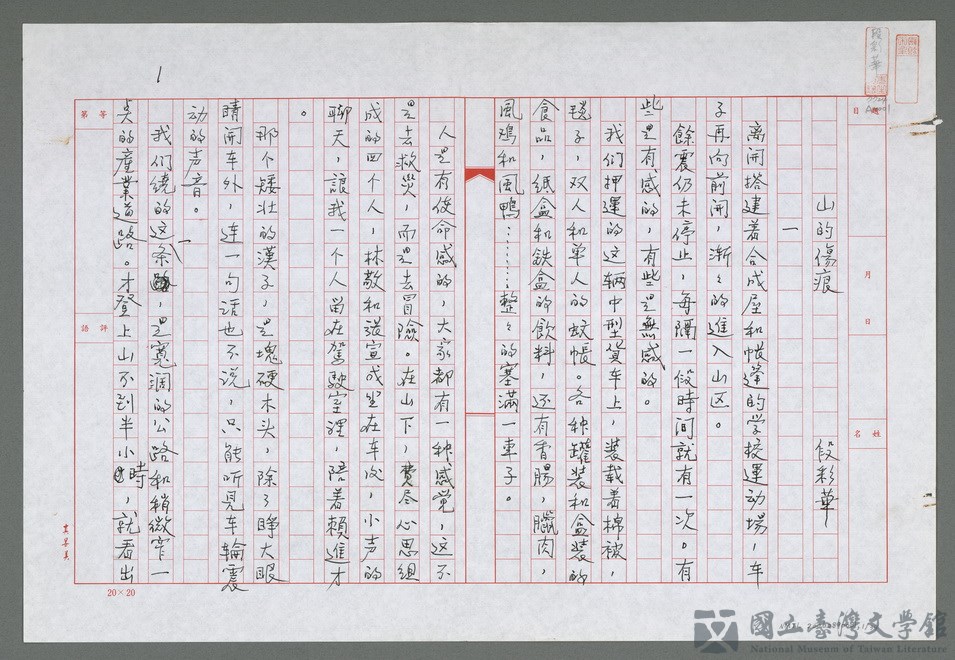 山的傷痕
段彩華
一
离開搭建着合成屋和帳篷的学校運动場，车
子再向前開，漸々的進入山区。
餘震仍未停止，每隔一段時间就有一次。有
些是有感的，有些是無感的。
我们押運的这辆中型貨车上，装載着棉被，
毯子，双人和单人的蚊帳。各种罐装和盒装的
食品，纸盒和鉄盒的飲料，还有香腸，臘肉，
風鸡和風鴨⋯⋯⋯⋯整々的塞滿一車子。
人是有使命感的，大家都有一种感觉，这不
是去救災，而是去冒險。在山下，費尽心思組
成的四个人，林敬和諾宣成坐在车后，小声的
聊天，讓我一个人留在駕駛室裡，陪着賴進才
。
那个矮壮的漢子，是塊硬木头，除了睜大眼
睛開车外，连一句话也不说，只能听見车輪震
动的声音。
我们繞的这条，是寬润的公路和稍微窄一
点的產業道路。才登上山不到半小時，就看出
1
題目
月
日
姓名
等第
評語
20×20
段彩華
國立臺灣文學館
National Museum of Taiwan Literature